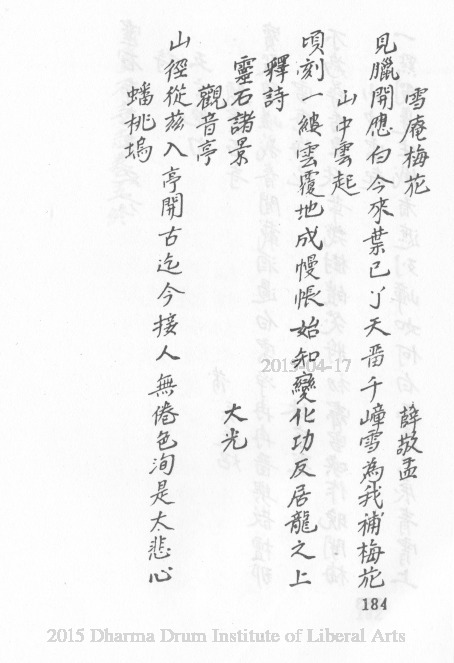 雪庵梅花
薛敬孟
見臘開應白今來葉已丫天畱千嶂雪為我補梅花
山中雲起
頃刻一縷雲覆地成幔帳始知變化功反居龍之上
釋詩
靈石諸景
大光
觀音亭
山徑從茲入亭開古迄今接人無倦色洵是大悲心
蟠桃塢
184
2015-04-17
2015 Dharma Drum Institute of Liberal Arts